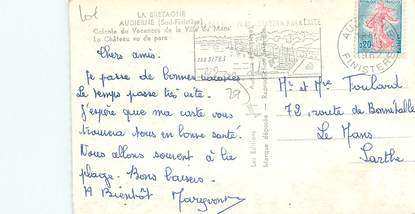 LA BRETAGNE
AUDIERNE (Sud-Finistère)
Colonie de Vacances de la Ville du Mans
Le Château vu du parc
Chers amis.
Je passe de bonnes vacances
Le temps passe très vite.
J'espère que ma carte vous
trouvera tous en bonne santé.
Nous allons souvent à la
plage. Bons baisers.
A Bientôt Maryvonne
29
SES SITES
Les Editions
Marque déposée
FINISTERE
0,20
Mr et Mme Foulard
72, route de Bonnétable
Le Mans
Sarthe